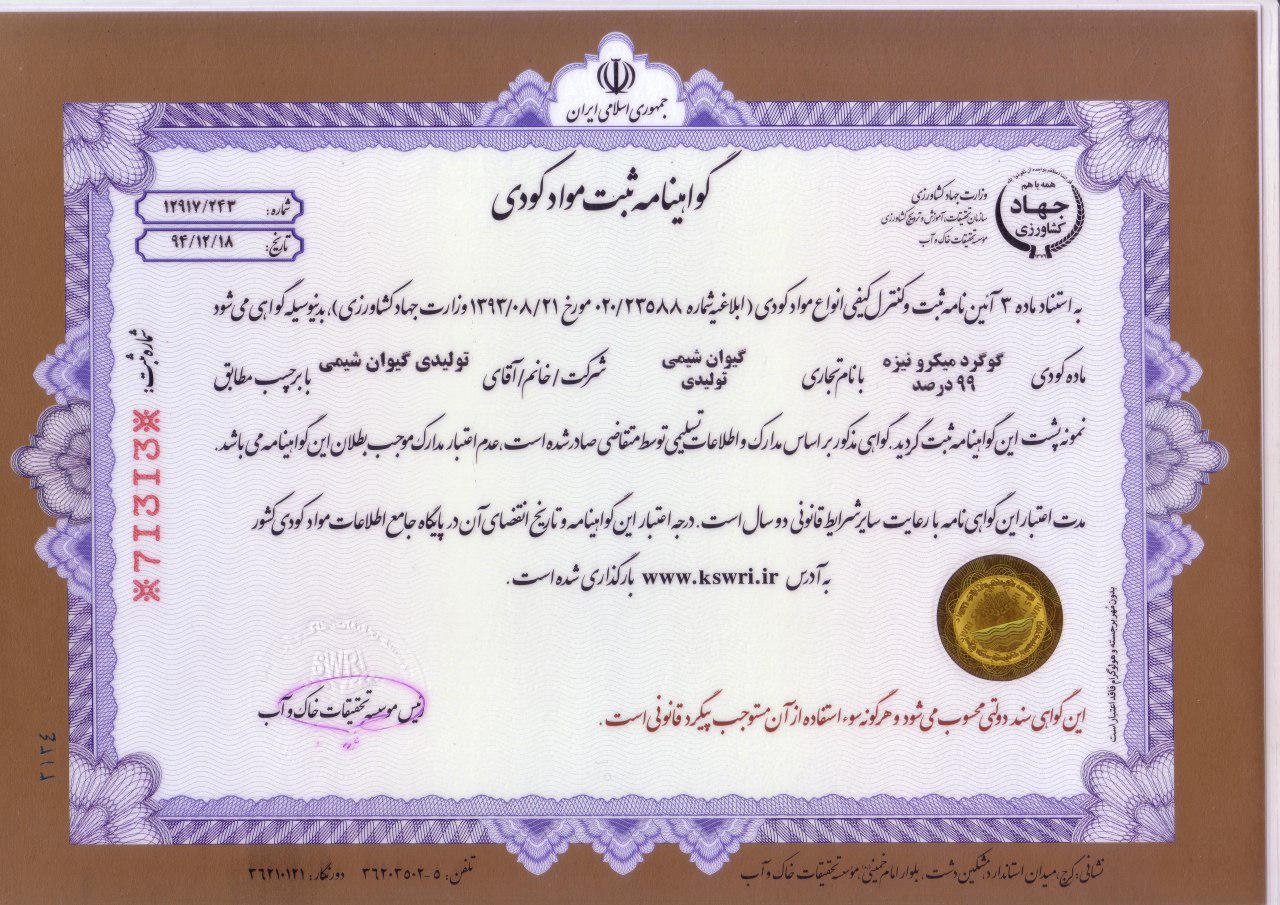 جمهوری اسلامی ایران
گواهینامه ثبت مواد کودی
همه با هم
جهاد
کشاورزی
۱۳۷۹
وزارت جهاد کشاورزی
سازمان تحقیقات، آموزش و ترویج کشاورزی
موسسه تحقیقات خاک و آب
شماره: ۱۲۹۱۷/۲۴۳
تاریخ: ۹۴/۱۲/۱۸
به استناد ماده ۳ آئین نامه ثبت و کنترل کیفی انواع مواد کودی (ابلاغیه شماره ۰۲۰/۲۳۵۸۸ مورخ ۱۳۹۳/۰۸/۲۱ وزارت جهاد کشاورزی)، بدینوسیله گواهی می شود
ماده کودی گوگرد میکرو نیزه ۹۹ درصد با نام تجاری گیوان شیمی تولیدی شرکت / خانم / آقای تولیدی گیوان شیمی با برچسب مطابق
نمونه پشت این گواهینامه ثبت گردید. گواهی مذکور بر اساس مدارک و اطلاعات تسلیمی توسط متقاضی صادر شده است، عدم اعتبار مدارک موجب بطلان این گواهینامه می باشد.
مدت اعتبار این گواهی نامه با رعایت سایر شرایط قانونی دو سال است. درجه اعتبار این گواهینامه و تاریخ انقضای آن در پایگاه جامع اطلاعات مواد کودی کشور
به آدرس www.kswri.ir بارگذاری شده است.
شماره ثبت:
※71313※
SWRI
رئیس موسسه تحقیقات خاک و آب
این گواهی سند دولتی محسوب می شود و هرگونه سوء استفاده از آن مستوجب پیگرد قانونی است.
بدون مهر برجسته و هولوگرام فاقد اعتبار است
۲۱۳۴
نشانی: کرج، میدان استاندارد، مشکین دشت، بلوار امام خمینی، موسسه تحقیقات خاک و آب
تلفن: ۵-۳۶۲۰۳۵۰۲ دورنگار: ۳۶۲۱۰۱۲۱